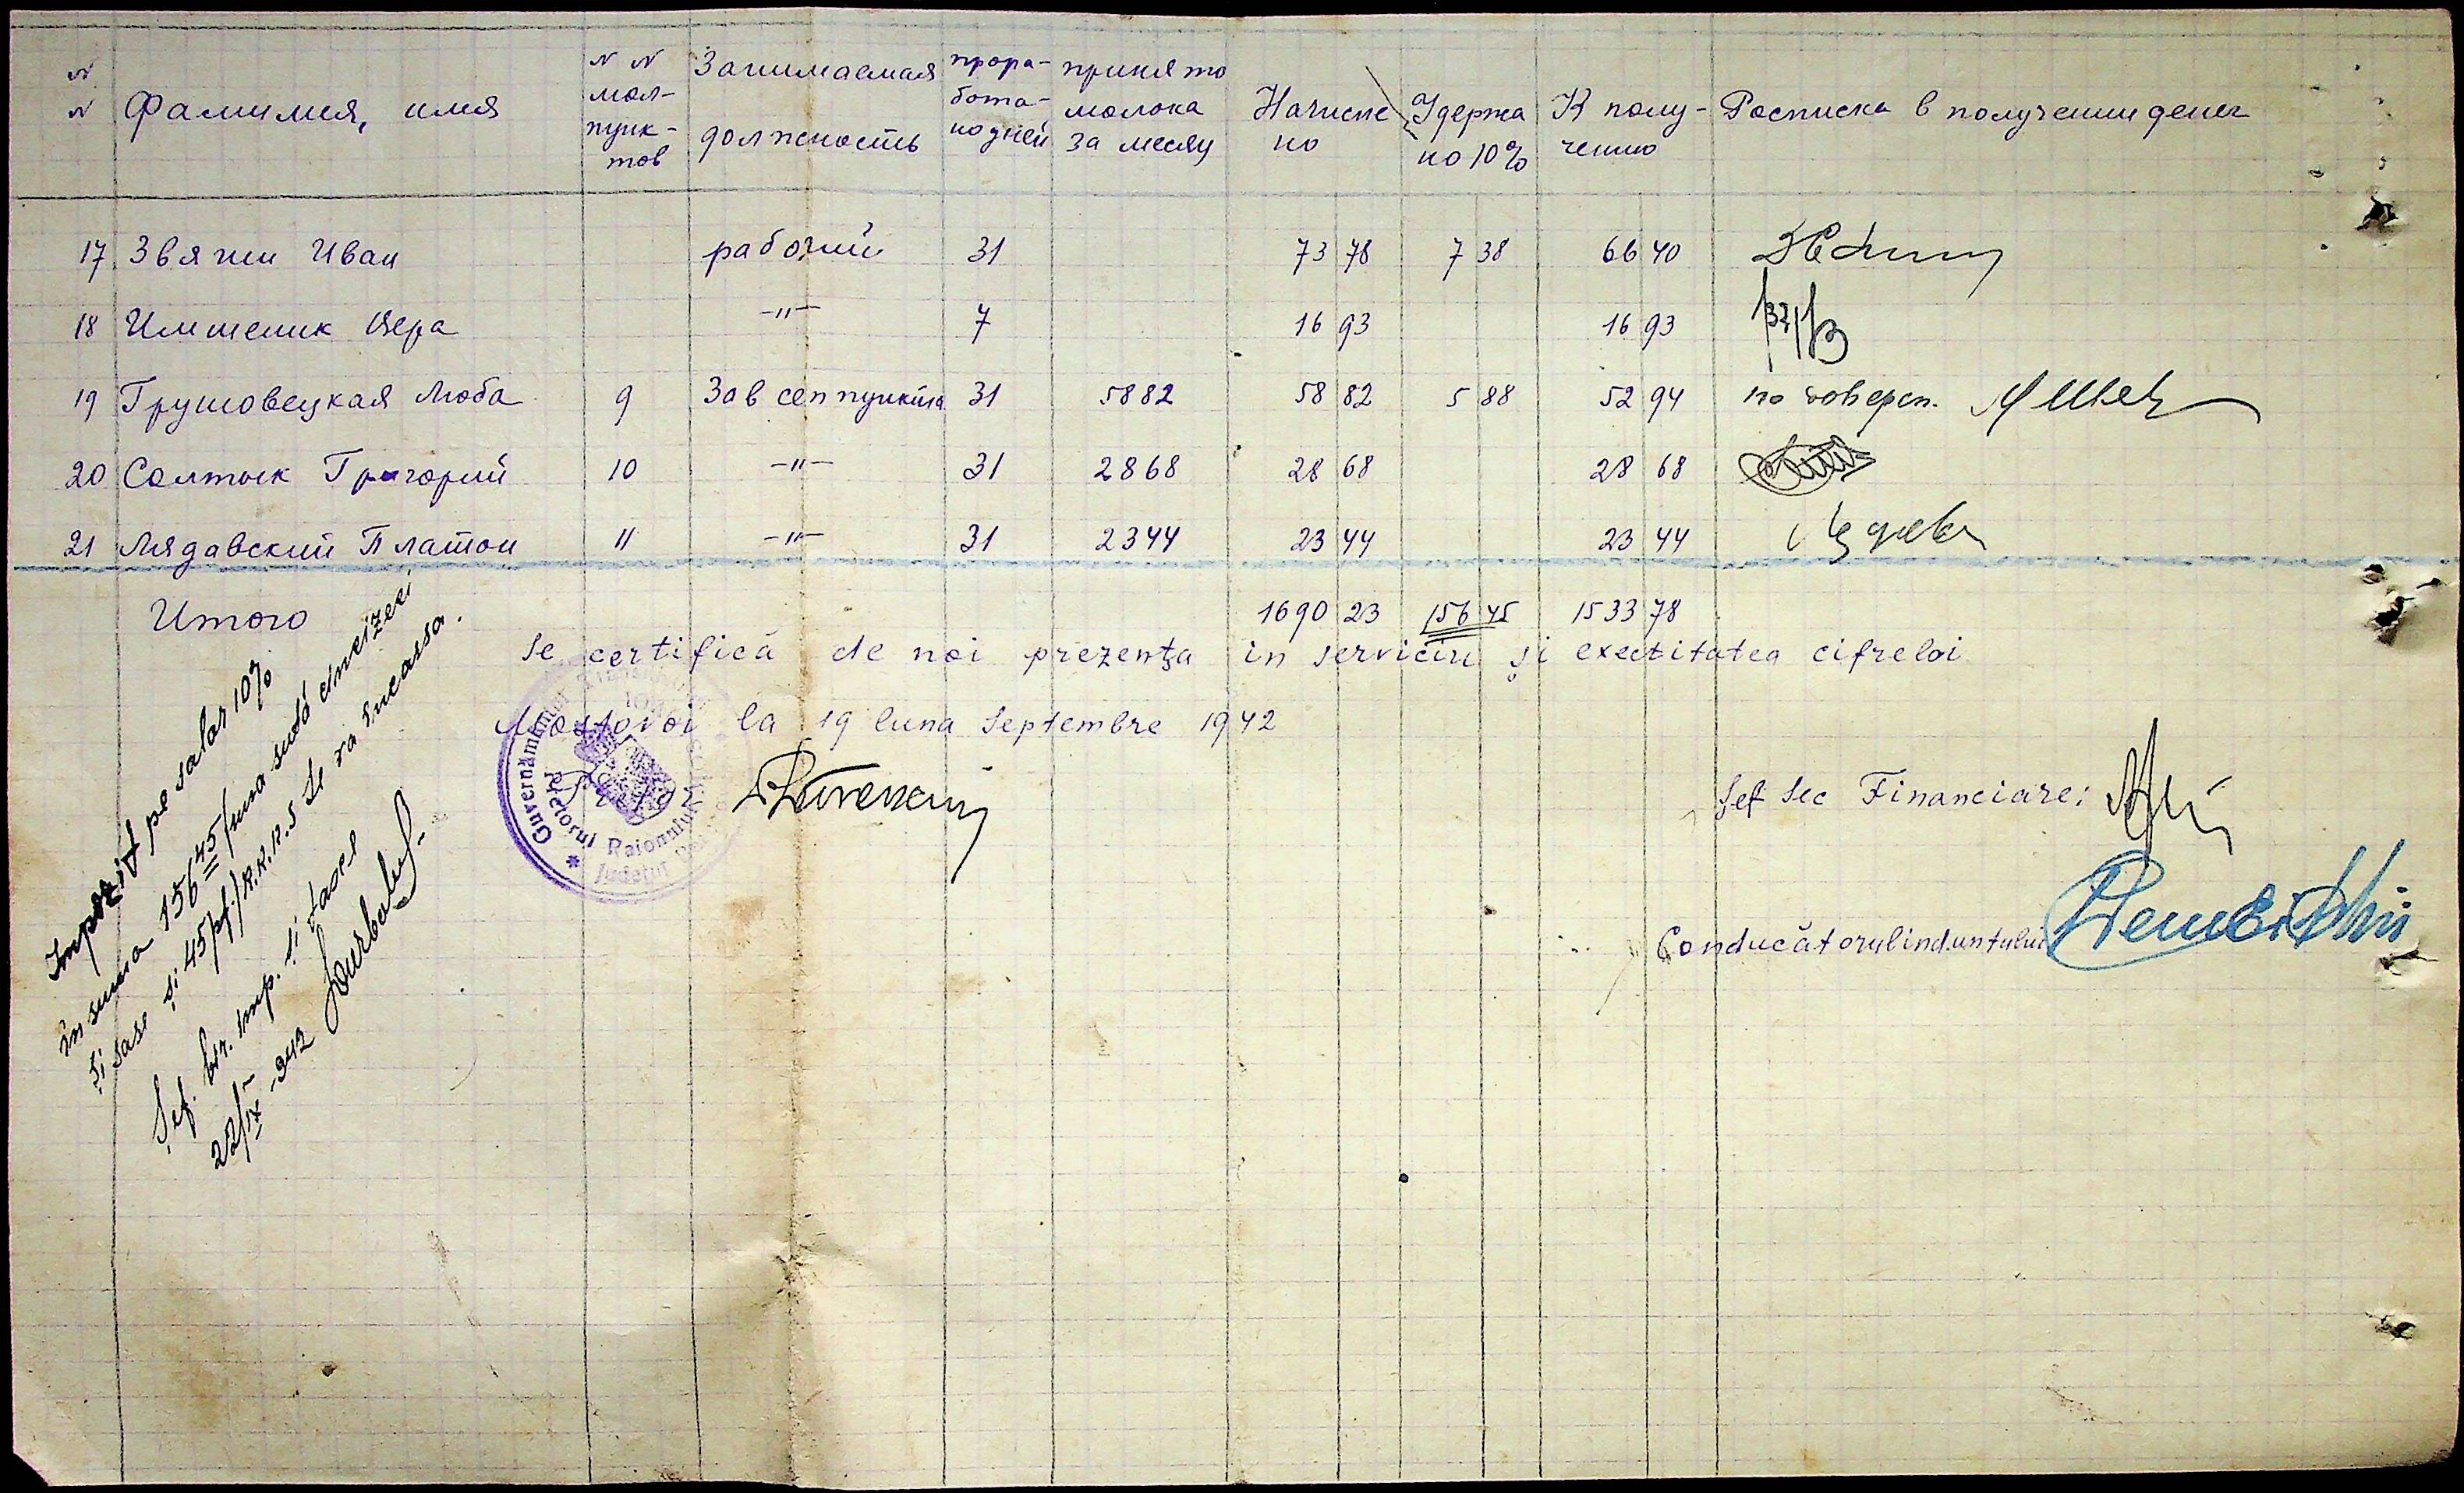 N N Фамилия, имя N N мол-пунк-тов Занимаемая должность прора-бота-но дней принято молока за месяц Начисле но Удержа но 10% К полу-чению Росписка в получении денег
17 Звягин Иван рабочий 31 73 78 7 38 66 40
18 Имшеник Вера -"- 7 16 93 16 93
19 Грушовецкая Люба 9 Зав сеп пункта 31 5882 58 82 5 88 52 94 по доверен. Швец
20 Солтык Григорий 10 -"- 31 2868 28 68 28 68
21 Лядавский Платон 11 -"- 31 2344 23 44 23 44
Итого 1690 23 156 45 1533 78
Se certifică de noi prezenţa in serviciu şi exectitatea cifreloi
Mostovoi la 19 luna Septembre 1942
Pretor
Guvernământul Transnistriei
Pretorul Raionului
Judeţul
Şef Sec Financiare:
Conducătorul ind. untului
Impozit pe salar 10%
în suma 156 45 /una sută cincizeci
şi sase şi 45 pf./ R.K.K.S se va încassa.
Şef. bir. imp. şi taxe
22/IX-942